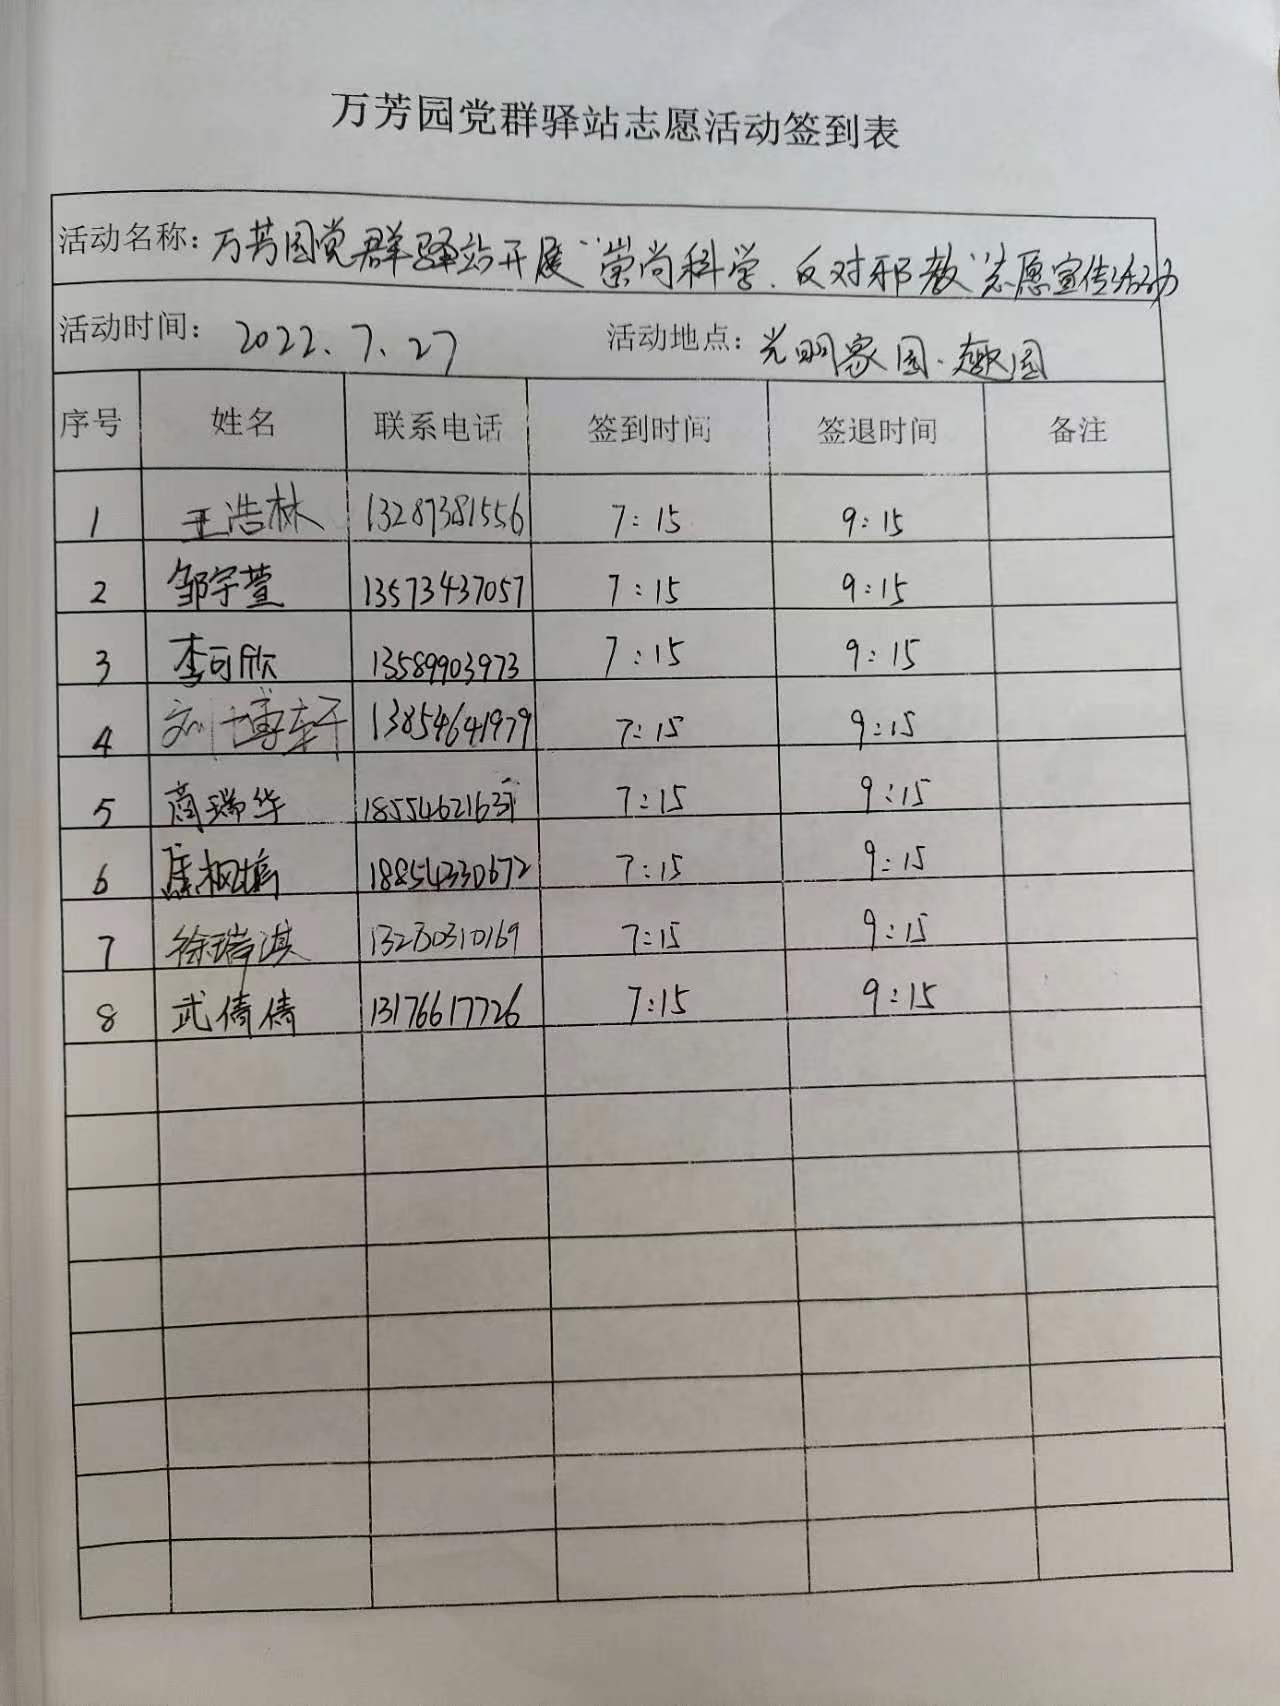 万芳园党群驿站志愿活动签到表
活动名称：万芳园党群驿站开展“崇尚科学、反对邪教”志愿宣传活动
活动时间：2022.7.27 活动地点：光明家园·趣园
序号 姓名 联系电话 签到时间 签退时间 备注
1 王浩林 13287381556 7:15 9:15
2 邹宇萱 13573437057 7:15 9:15
3 李可欣 13589903973 7:15 9:15
4 刘博轩 13854641979 7:15 9:15
5 商瑞华 7:15 9:15
6 18854330672 7:15 9:15
7 徐瑞淇 7:15 9:15
8 武倩倩 13176617726 7:15 9:15